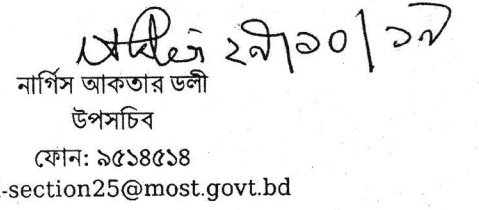 ২৭/১০/১৯
নার্গিস আকতার ডলী
উপসচিব
ফোন: ৯৫১৪৫১৪
-section25@most.govt.bd